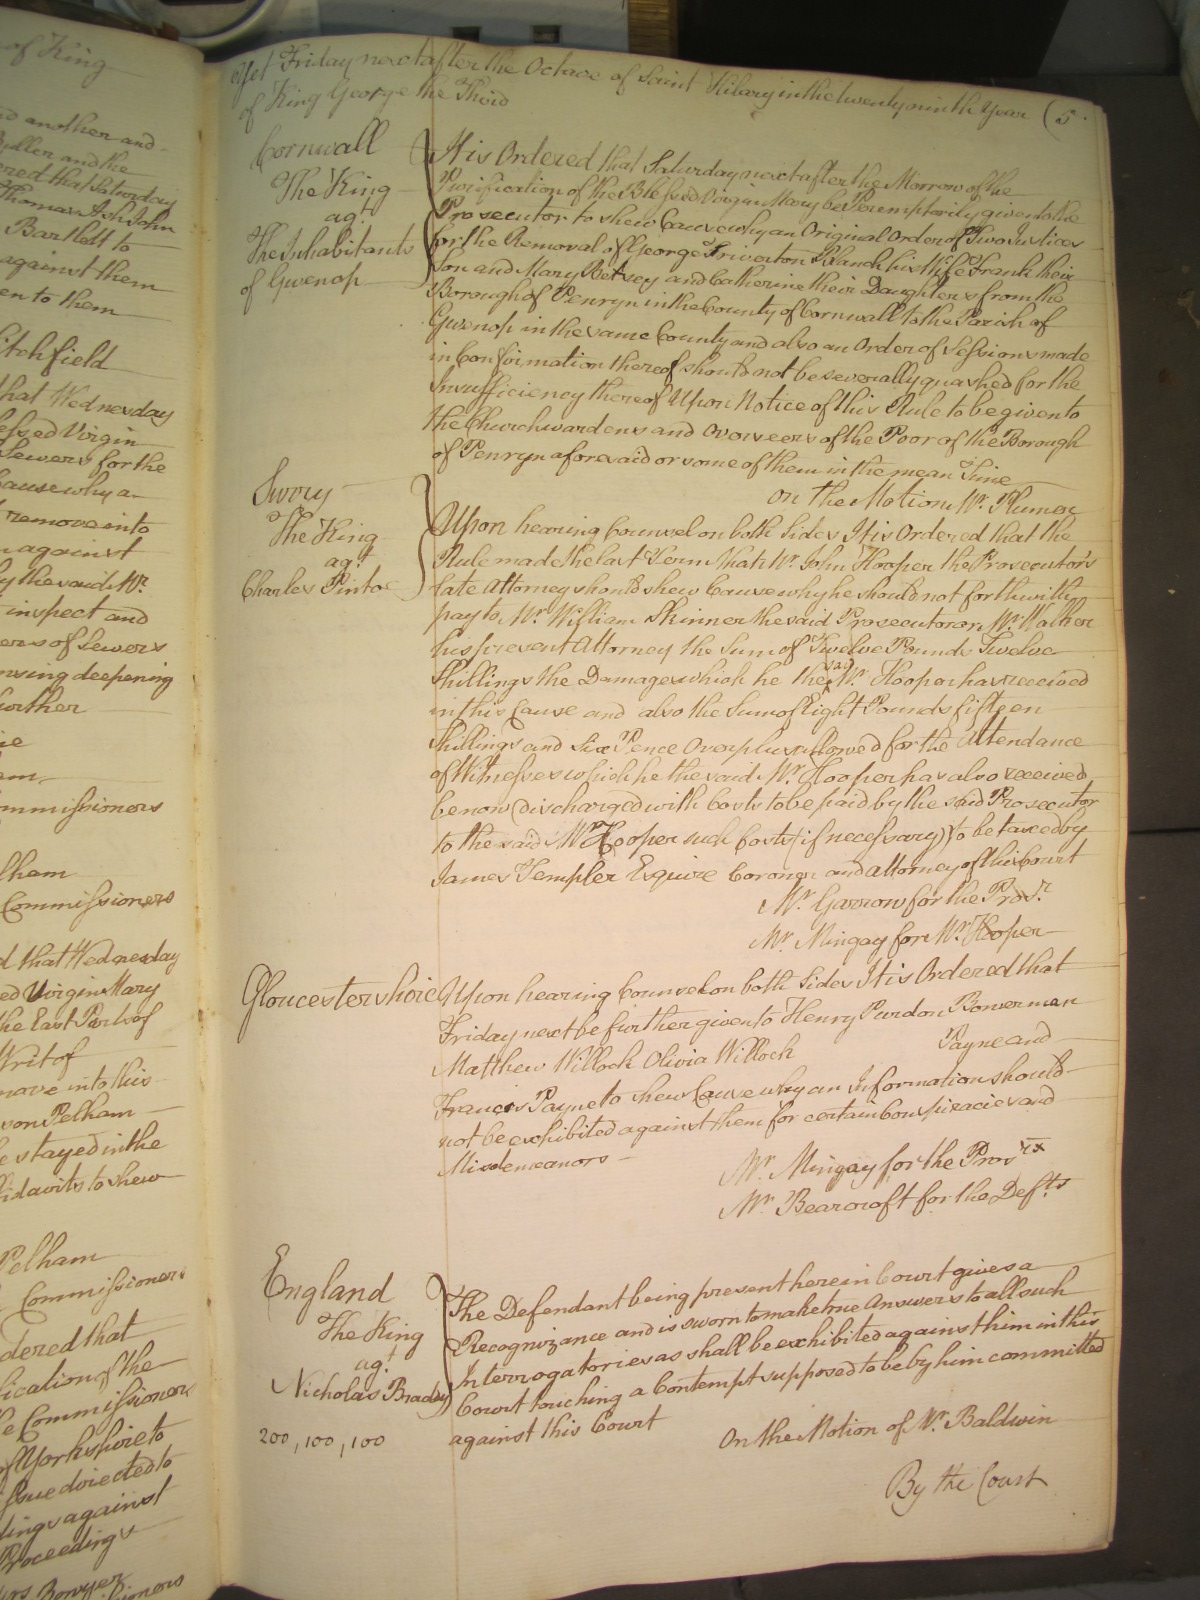 of King
nd another and
Buller and the
ered that Saturday
Thomas Ash John
Bartlett to
against them
en to them
itchfield
that Wednesday
essed Virgin
Sewers for the
Cause why a
remove into
n against
y the said Mr.
inspect and
ers of Sewers
nsing deepening
urther
ommissioners
lham
Commissioners
d that Wednesday
ed Virgin Mary
the East Parts of
Writ of
move into this
son Pelham
e stayed in the
fidavits to shew
Pelham
Commissioners
dered that
fication of the
he Commissioners
of Yorkshire to
issue directed to
dings against
Proceedings
Bowyer
sioners
Yet Friday next after the Octave of Saint Hilary in the twenty ninth Year (5.
of King George the Third
Cornwall
The King
agt.
The Inhabitants
of Gwenop
It is Ordered that Saturday next after the Morrow of the
Purification of the Blessed Virgin Mary be Peremptorily given to the
Prosecutor to shew Cause why an Original Order of Two Justices
for the Removal of George Triverton Blanch his Wife Frank their
Son and Mary Betsey and Catherine their Daughters from the
Borough of Penryn in the County of Cornwall to the Parish of
Gwenop in the same County and also an Order of Sessions made
in Confirmation thereof should not be severally quashed for the
Insufficiency thereof Upon Notice of this Rule to be given to
the Churchwardens and Overseers of the Poor of the Borough
of Penryn aforesaid or some of them in the mean Time
on the Motion Mr. Plumer
Surry
The King
agt.
Charles Pinto
Upon hearing Counsel on both Sides It is Ordered that the
Rule made the last Term that Mr. John Hooper the Prosecutor's
late Attorney should shew Cause why he should not forthwith
pay to Mr. William Skinner the said Prosecutor or Mr. Walker
his present Attorney the Sum of Twelve Pounds Twelve
Shillings the Damages which he the said Mr. Hooper has received
in this Cause and also the Sum of Eight Pounds fifteen
Shillings and Six Pence Overplus allowed for the Attendance
of Witnesses which he the said Mr. Hooper has also received
be now discharged with Costs to be paid by the said Prosecutor
to the said Mr. Hooper such Costs (if necessary) to be taxed by
James Templer Esquire Coroner and Attorney of this Court
Mr. Garrow for the Pros.r
Mr. Mingay for Mr. Hooper
Gloucestershire
Upon hearing Counsel on both Sides It is Ordered that
Friday next be further given to Henry Purdon Bowerman
Matthew Willock Olivia Willock Payne and
Francis Payne to shew Cause why an Information should
not be exhibited against them for certain Conspiracies and
Misdemeanors
Mr. Mingay for the Pros.rix
Mr. Bearcroft for the Def.ts
England
The King
agt.
Nicholas Brady
200, 100, 100
The Defendant being present here in Court gives a
Recognizance and is sworn to make true Answers to all such
Interrogatories as shall be exhibited against him in this
Court touching a Contempt supposed to be by him committed
against this Court
On the Motion of Mr. Baldwin
By the Court